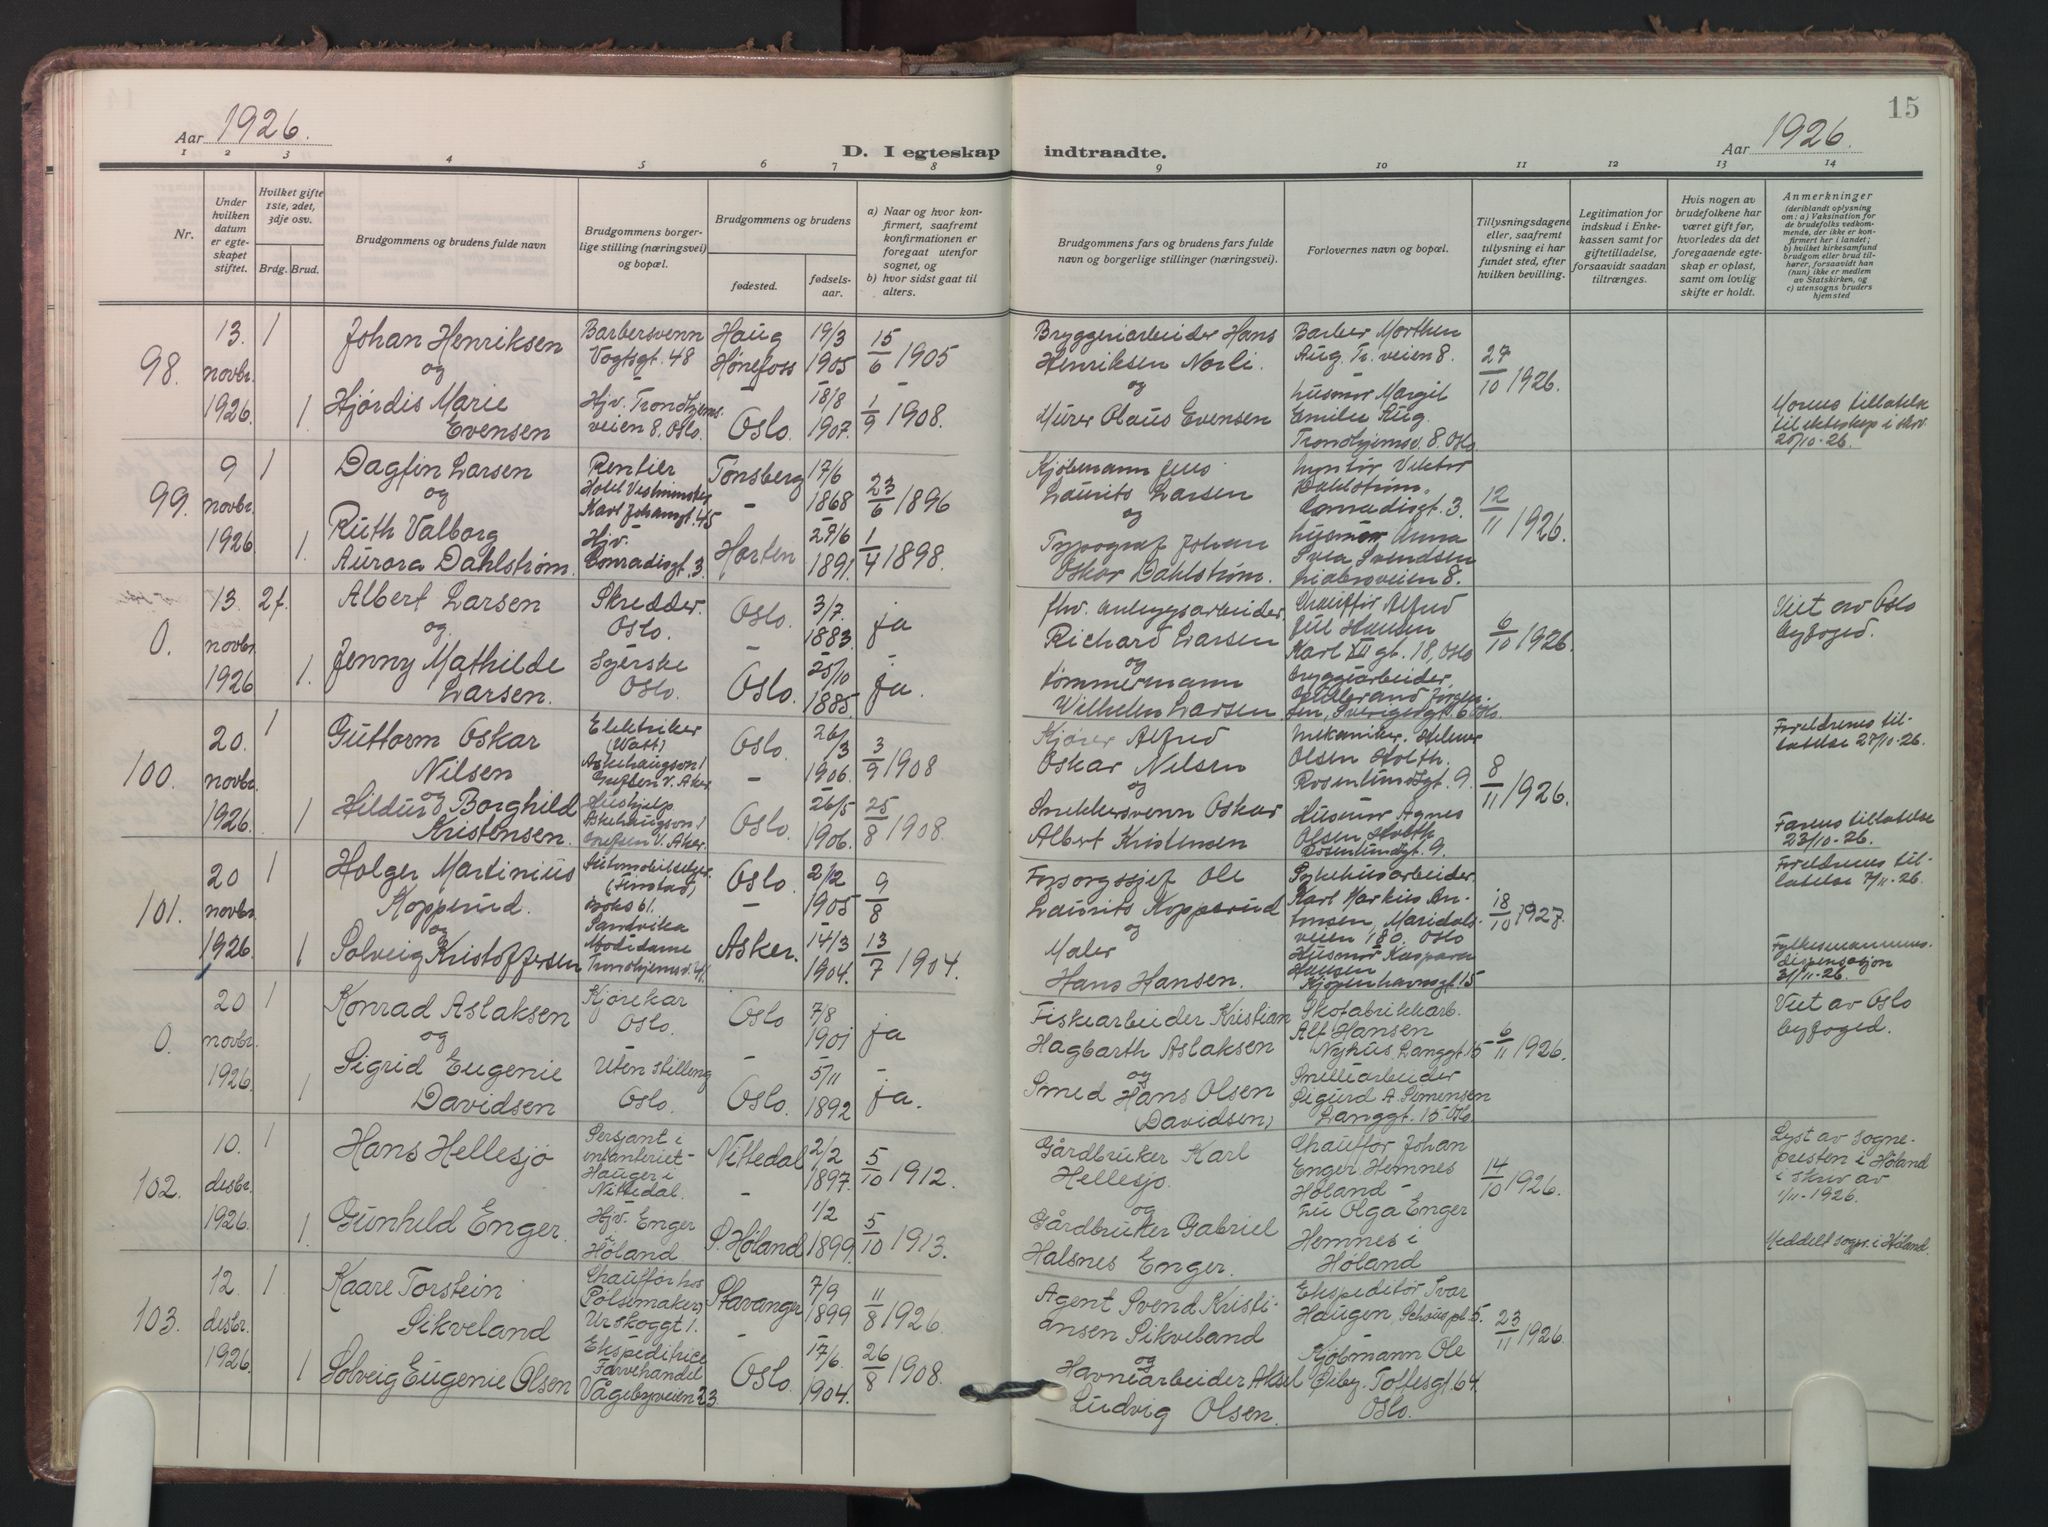 15
Aar 1926.
D. I egteskap indtraadte.
Aar 1926.
1 2 3 4 5 6 7 8 9 10 11 12 13 14
Nr.
Under hvilken datum er egteskapet stiftet.
Hvilket gifte 1ste, 2det, 3dje osv.
Brdg. Brud.
Brudgommens og brudens fulde navn
Brudgommens borgerlige stilling (næringsvei) og bopæl.
Brudgommens og brudens
fødested.
fødselsaar.
a) Naar og hvor konfirmert, saafremt konfirmationen er foregaat utenfor sognet, og
b) hvor sidst gaat til alters.
Brudgommens fars og brudens fars fulde navn og borgerlige stillinger (næringsvei).
Forlovernes navn og bopæl.
Tillysningsdagene eller, saafremt tillysning ei har fundet sted, efter hvilken bevilling.
Legitimation for indskud i Enkekassen samt for giftetilladelse, forsaavidt saadan tiltrænges.
Hvis nogen av brudefolkene har været gift før, hvorledes da det foregaaende egteskap er opløst, samt om lovlig skifte er holdt.
Anmerkninger
(deriblandt oplysning om: a) Vaksination for de brudefolks vedkommende, der ikke er konfirmert her i landet; b) hvilket kirkesamfund brudgom eller brud tilhører, forsaavidt han (hun) ikke er medlem av Statskirken, og c) utensogns bruders hjemsted
98. 13. novbr. 1926 1 Johan Henriksen Barbersvenn Vogtsgt. 48 Haug Hønefoss 19/3 1905 15/6 1905
Bryggeriarbeider Hans Henriksen Norli. Barber Morthen Aug. Tr. veien 8. 27/10 1926.
og
1. Hjørdis Marie Evensen Hjv. Trondhjems veien 8. Oslo. Oslo. 18/8 1907. 1/9 1908.
Murer Olaus Evensen Husmor Margit Emilie Aug. Trondhjemsv. 8. Oslo
20/10-26.
99. 9 novbr. 1926 1 Dagfin Larsen Rentier Karl Johansgt. 45 Tønsberg 17/6 1868 23/6 1896
Kjøbmann Jens Laurits Larsen Viktor Dahlstrøm, Conradisgt. 3. 12/11 1926.
og
1. Ruth Valborg Aurora Dahlstrøm. Hjv. Conradisgt. 3 Horten 27/6 1891. 1/4 1898.
Typograf Johan Oskar Dahlstrøm. Husmor Anna Svea Svendsen
0. 13. novbr. 1926 2f. Albert Larsen Skredder. Oslo. Oslo. 3/7 1883. ja
fhv. anleggsarbeider. Richard Larsen Chauffør Alfred Hansen Karl XII gt. 18, Oslo 6/10 1926. Viet av Oslo byfoged.
og
1. Jenny Mathilde Larsen. Syerske Oslo. Oslo. 25/10 1885. ja.
tømmermann Wilhelm Larsen
100. 20. novbr. 1926. 1 Guttorm Oskar Nilsen Elektriker Oslo 26/3 1906. 3/9 1908
Kjører Alfred Oskar Nilsen Mekaniker. Olsen Holth. Rosenlundsgt. 9. 8/11 1926. Foreldrenes tillatelse 27/10-26.
og
1 Hildur Borghild Kristensen. Hushjelp Grefsen V. Aker. Oslo. 26/5 1906. 25/8 1908.
Snekkersvenn Oskar Albert Kristensen Husmor Agnes Olsen Holth Rosenlundsgt. 9. Farens tillatelse 23/10-26.
101. 20 novbr. 1926 1 Holger Martinius Kopperud. boks 61. Sandvika Oslo. 2/12 1905 9/8
Forsorgssjef Ole Laurits Kopperud Sykehusarbeider. Karl Markus Antonsen, Maridalsveien 180. Oslo 18/10 1927. Foreldrenes tillatelse 7/11-26.
og
1 Solveig Kristoffersen Modedame Trondhjemsv. 41. Asker. 14/3 1904. 13/7 1904.
Maler Hans Hansen. Husmor Kaspara Hansen Kjøpenhavnsgt. 15 Fylkesmannens dispensasjon 3/11-26.
0. 20 novbr. 1926. 1 Konrad Aslaksen Kjørekar Oslo. Oslo 7/8 1901 ja
Fiskearbeider Kristian Hagbarth Aslaksen Skofabrikkarb. Alf Hansen Nyhus, Langgt. 15 6/11 1926. Viet av Oslo byfoged.
og
1 Sigrid Eugenie Davidsen Uten stilling Oslo. Oslo. 5/11 1892 ja.
Smed Hans Olsen (Davidsen) Sigurd A. Simensen Langgt. 15 Oslo.
102. 10. desbr. 1926. 1 Hans Hellesjø Sersjant i infanteriet - Hauger i Nittedal. Nittedal 2/2 1897. 5/10 1912.
Gårdbruker Karl Hellesjø. Chauffør Johan Enger Hemnes Høland - 14/10 1926. Lyst av sognepresten i Høland i skriv av 1/11-1926.
og
1. Gunhild Enger. Hjv. Enger Høland S. Høland 1/2 1899. 5/10 1913.
Gårdbruker Gabriel Halsnes Enger. Olga Enger Hemnes i Høland Meddelt sogpr. i Høland.
103. 12. desbr. 1926 1 Kaare Torstein Sikveland Chauffør hos Pølsemaker, Urskoggt 1. Stavanger 7/9 1899 11/8 1926.
Agent Svend Kristiansen Sikveland Ekspeditør Ivar Haugen, Schous pl. 5. 23/11 1926.
og
1 Solveig Eugenie Olsen Ekspeditrice Farvehandel Vågebyveien 23 Oslo. 17/6. 1904. 26/8 1908.
Havnearbeider Aksel Ludvig Olsen. Kjøbmann Ole Øiby. Toftesgt. 64 Oslo.